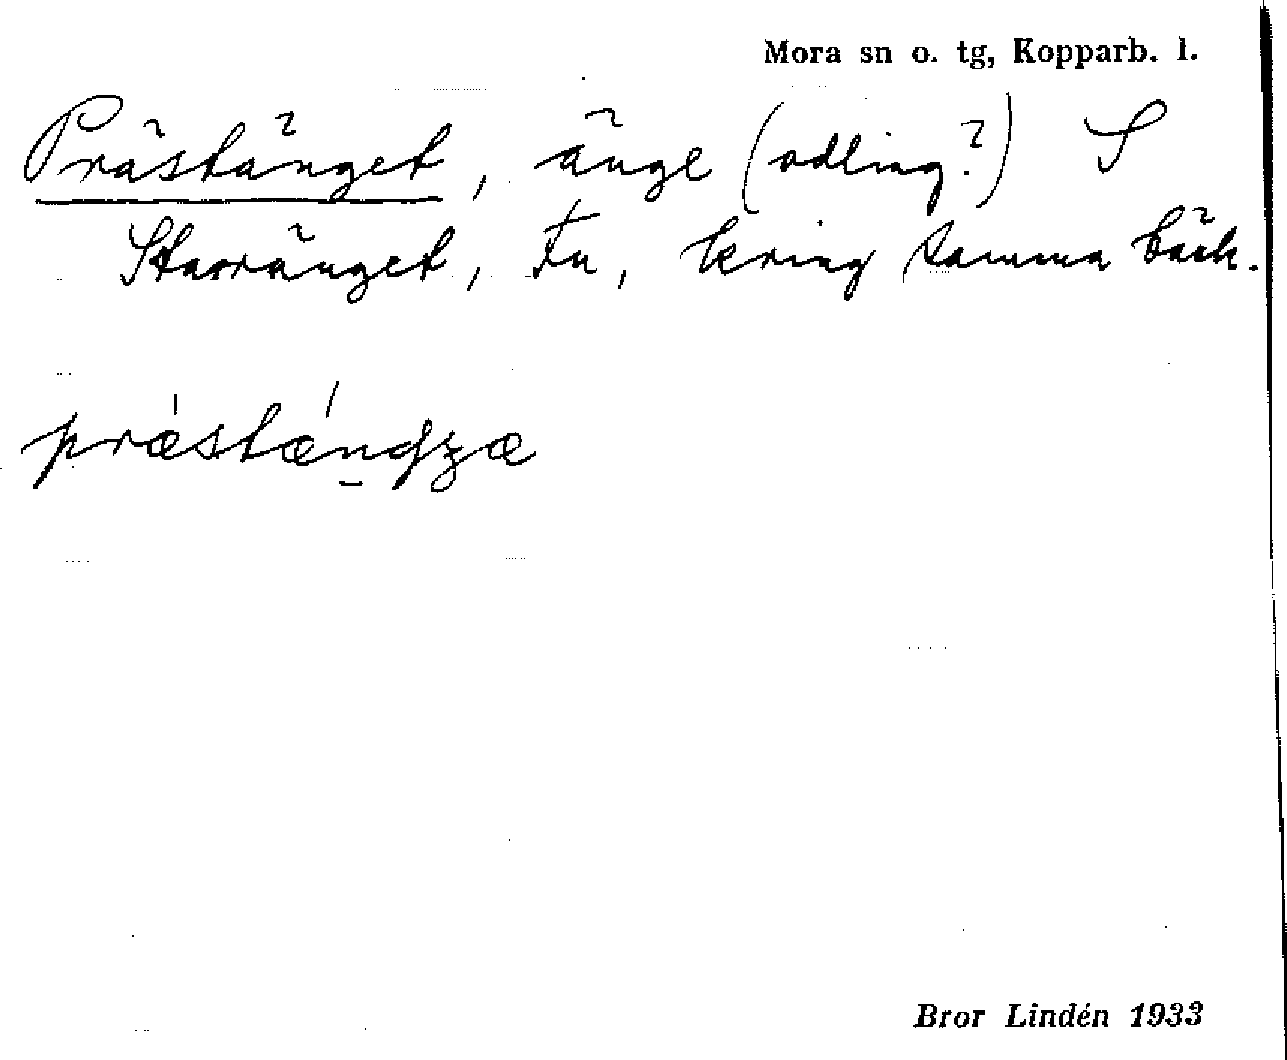 Mora sn o. tg, Kopparb. l.
Prästänget, änge (odling?) S
Starränget, Fu, kring samma bäck.
prǽstǽngʒæ
Bror Lindén 1933